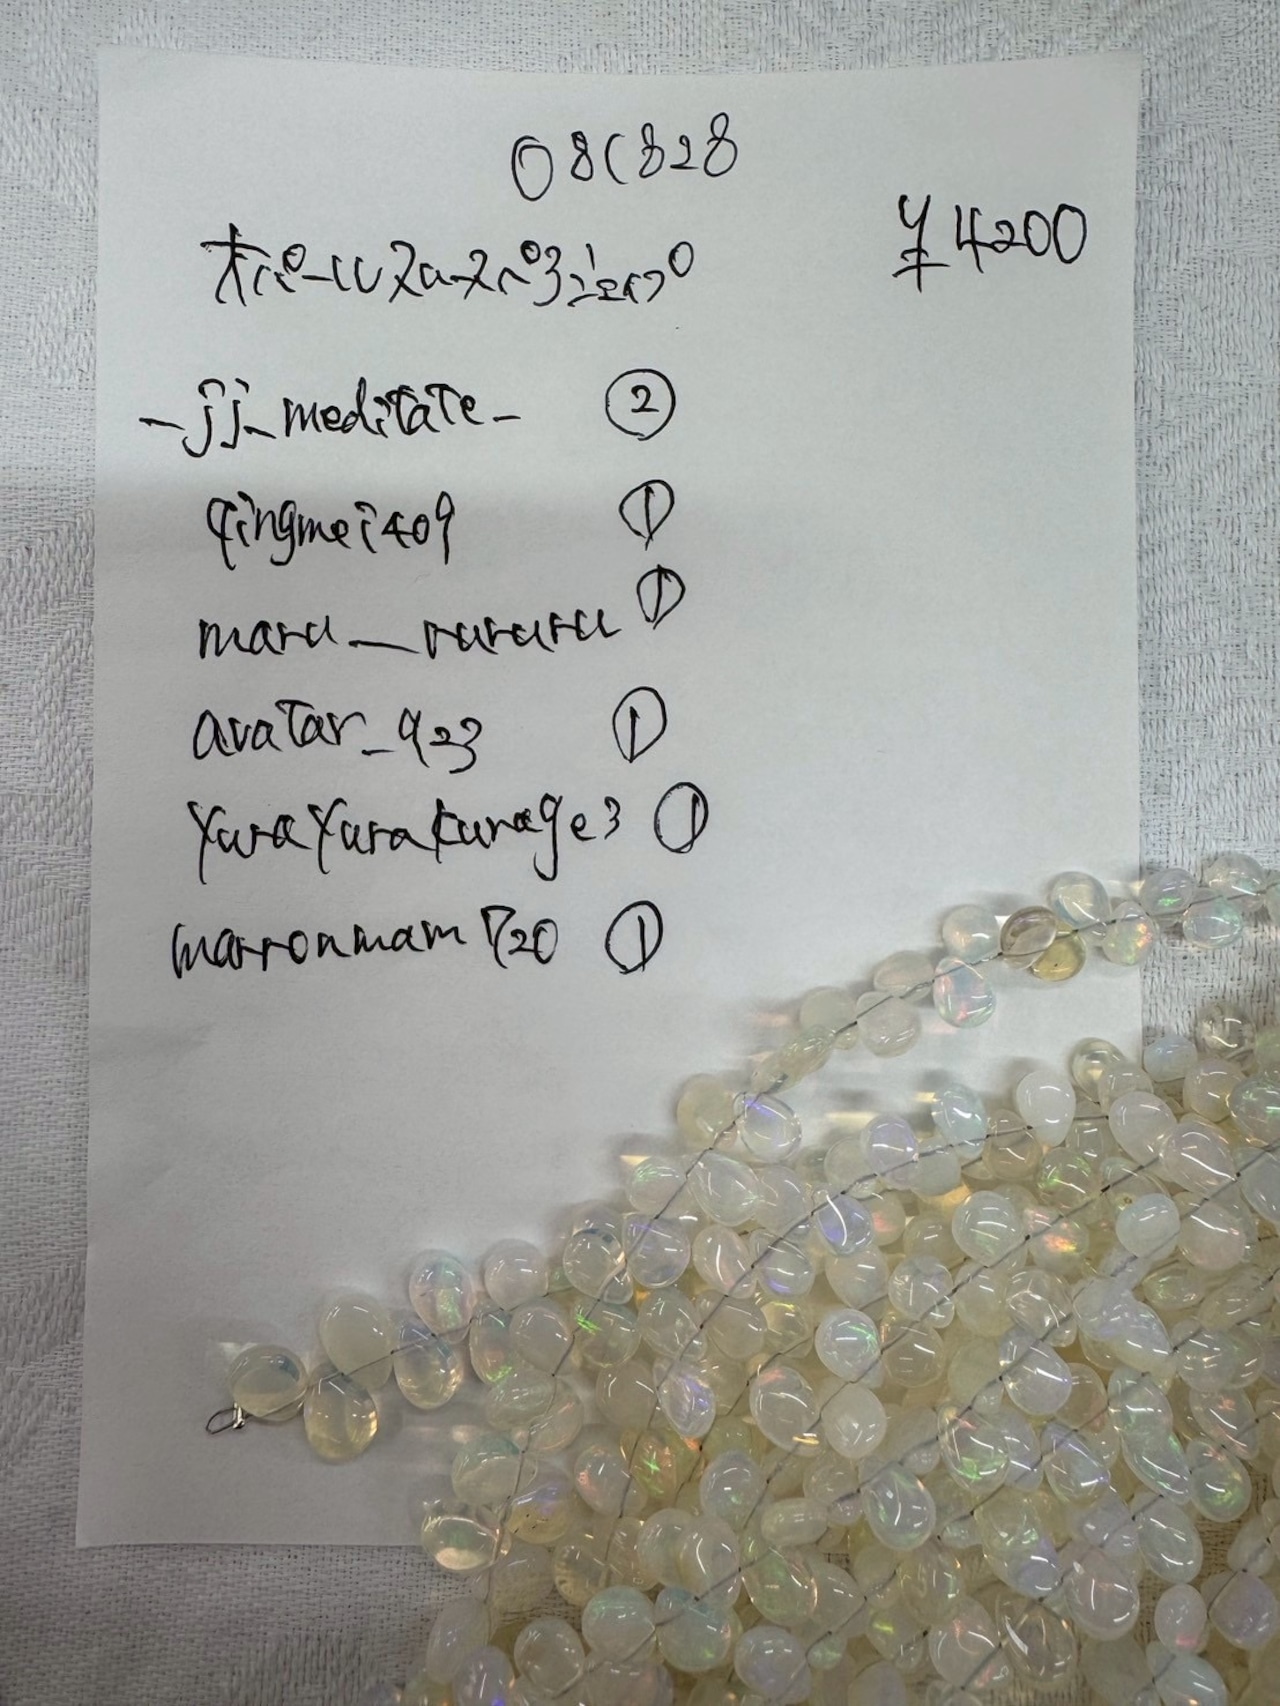 08C828
¥4200
_jj_meditate_ ②
qingmei409 ①
maru__rururu ①
avatar_923 ①
yurayurakurage3 ①
marronmam720 ①